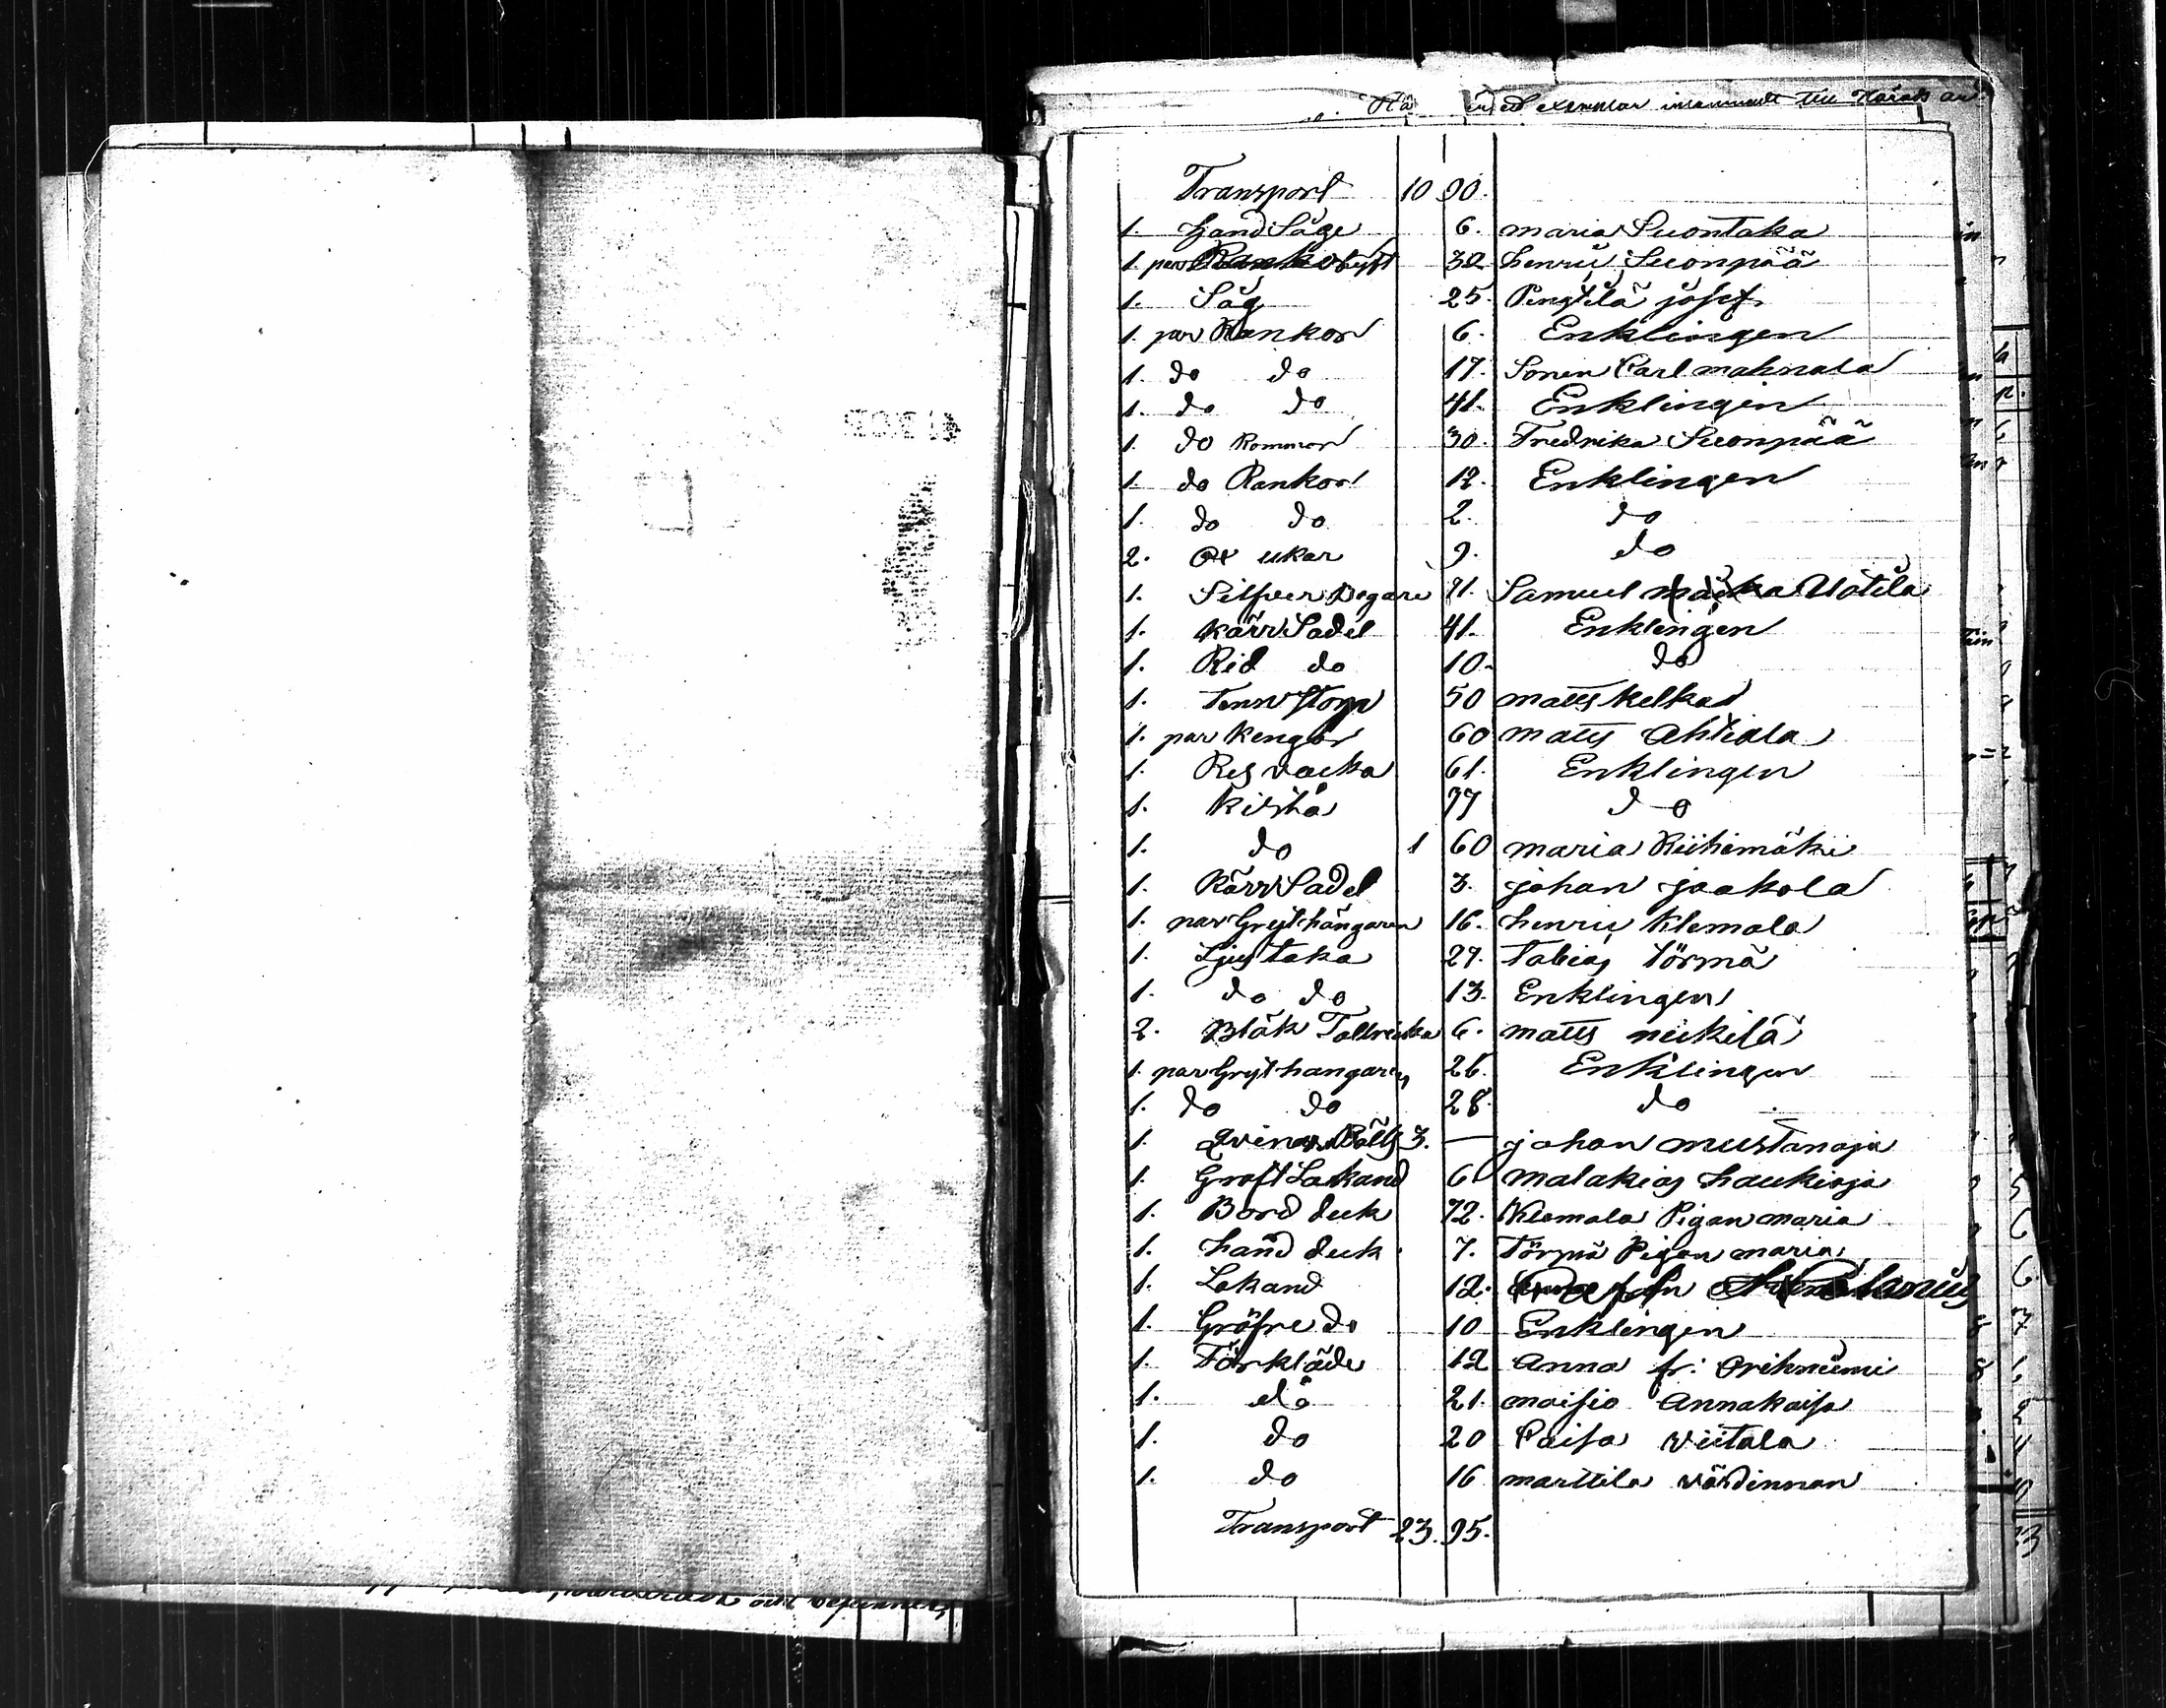 exemplar till
Transport 10 90.
1. handSåge 6. maria Suontaka
1. par 32 henrij Suonpää
1. Såg 25. Pengtilä josef
1. par Rankor 6. Enklingen
1. do do 17. Sonen Carl mahnala
1. do do 41. Enklingen
1. do Rommor 30. Fredrika Suonpää
1. do Rankor 12. Enklingen
1. do do 2. do
2. Ox ukar 9. do
1. Silfver Begare 91. Samuel Uotila
1. KärrSadel 41. Enklingen
1. Rid do 10. do
1. Tenn stop 50 matts Kelkka
1. par Kengor 60 matts Ahtiala
1. Res vacka 61. Enklingen
1. Kista 77 do
1. do 1 60 maria Riihimäki
1. KärrSadel 3. johan jaakola
1. par Grythängaren 16. henrij Klemala
1. Ljus taka 27. Tabias Törmä
1. do do 13. Enklingen
2. Bläk Tallricka 6. matts niikilä
1. par Grythangaren 26. Enklingen
1. do do 28. do
1. Qvinos Pälts 3. — johan mustanoja
1. Groft Lakand 6 malakias haukioja
1. Bord duk 72. Klemala Pigan maria
1. hand duk 7. Törmä Pigan maria
1. Lakand 12.
1. Gröfre do 10 Enklingen
1. Förkläde 12 Anna fr: Orihniemi
1. do 21. maisio Annakaisa
1. do 20 Caisa Viitala
1. do 16 marttila värdinnan
Transport 23. 95.